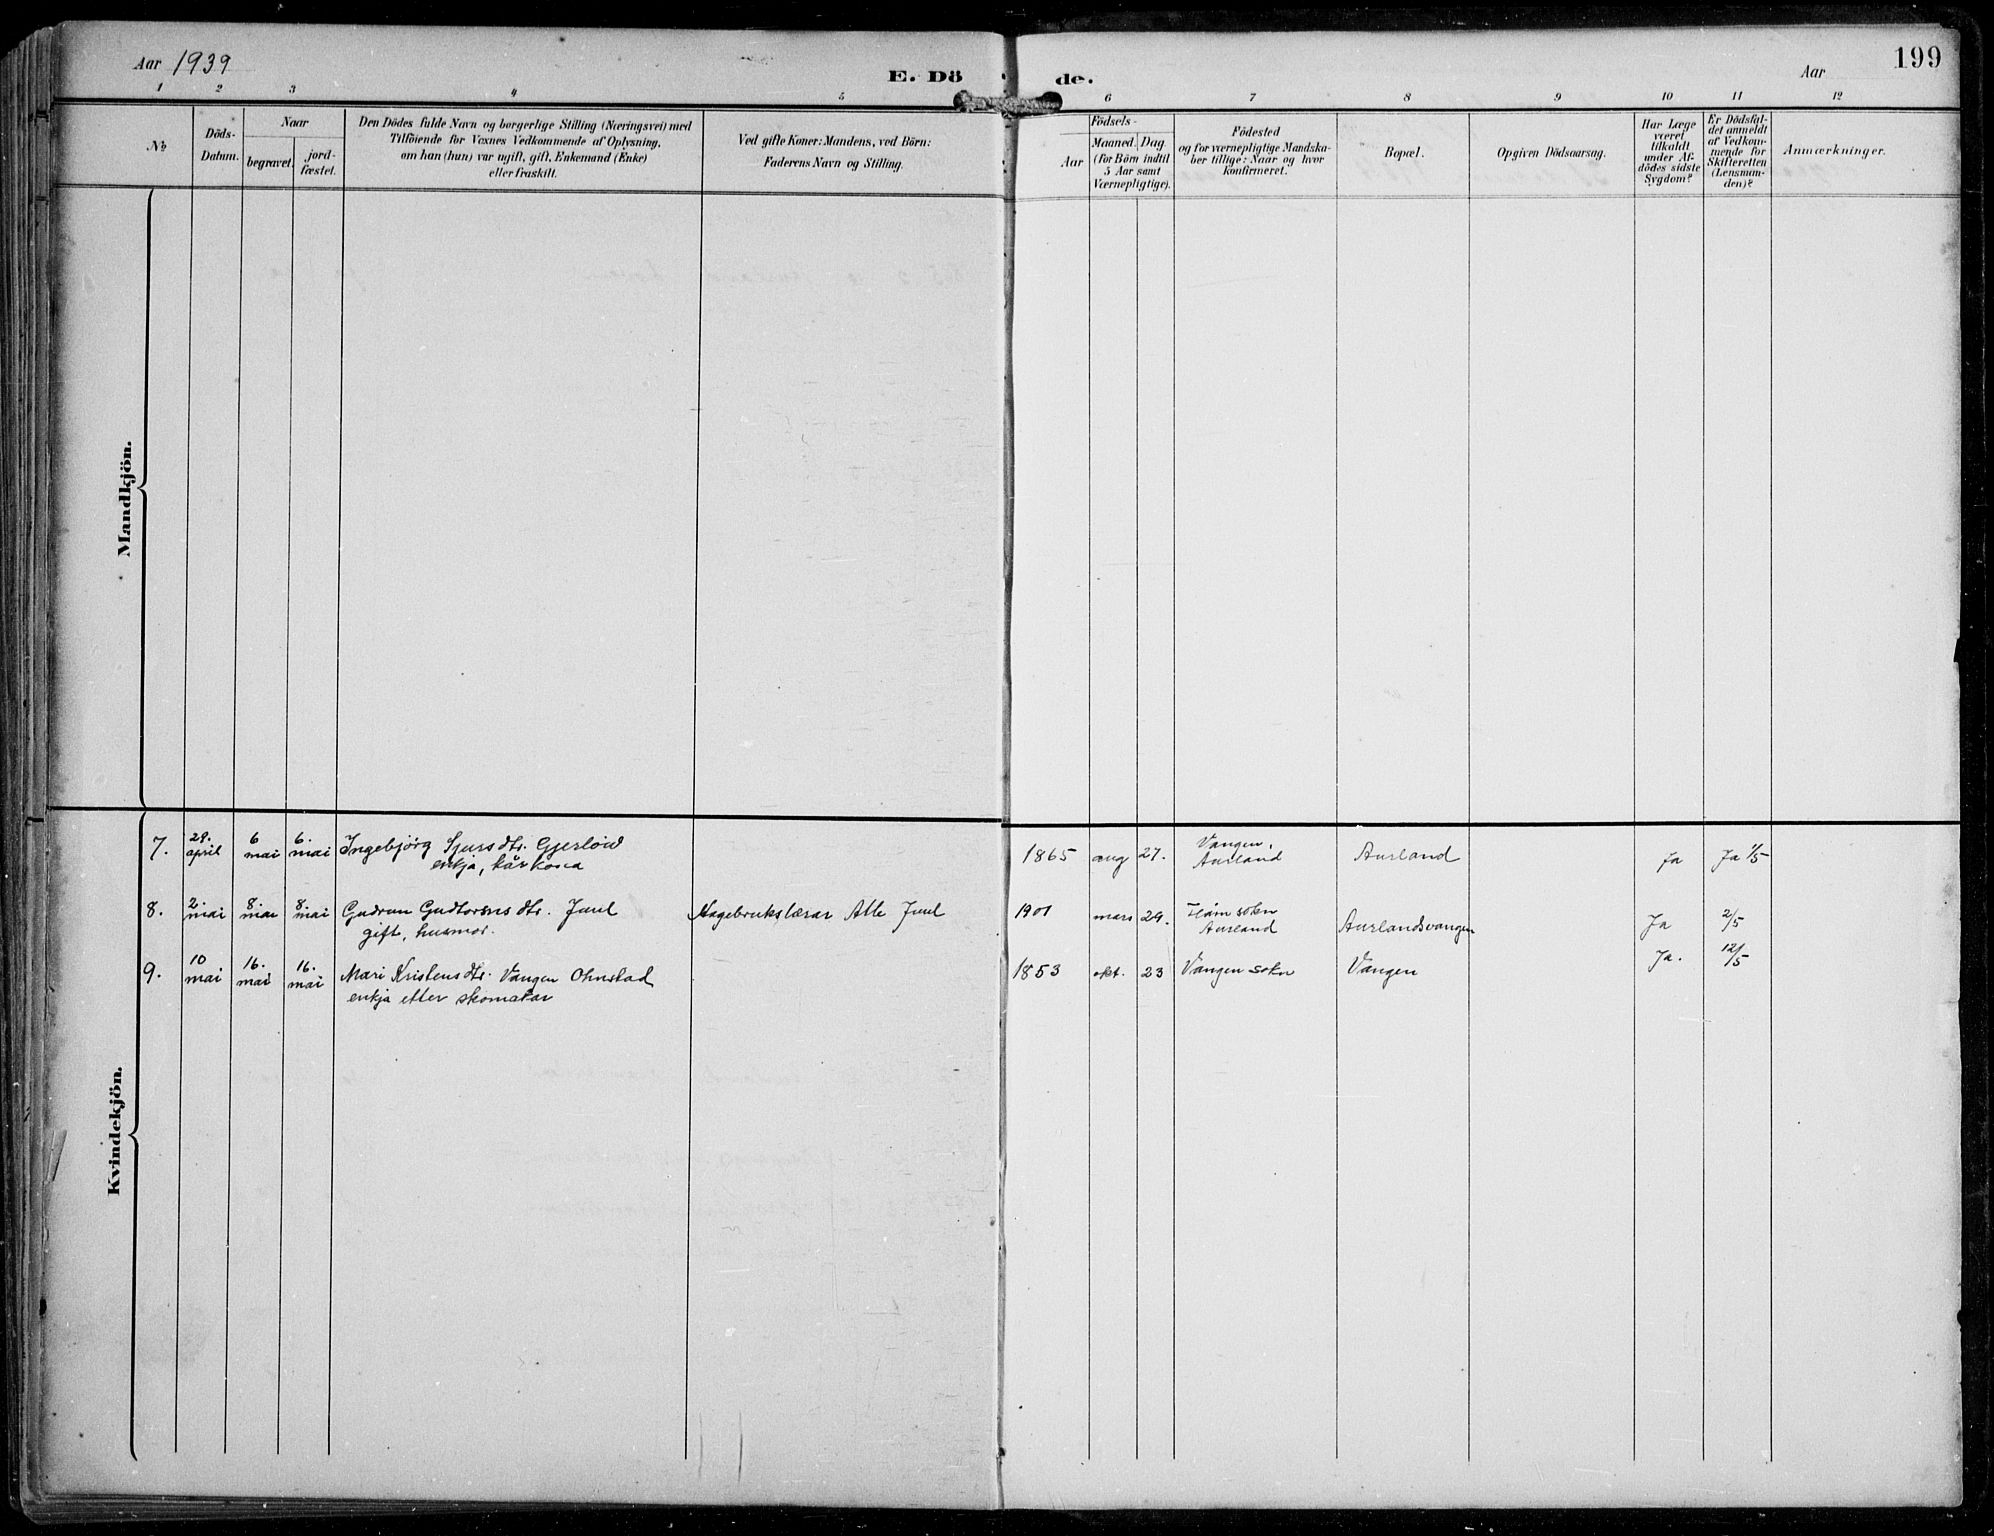 Aar 1939
E. Döde.
Aar
199
1 2 3 4 5 6 7 8 9 10 11 12
No
Döds-
Datum.
Naar
begravet.
jord-
fæstet.
Den Dödes fulde Navn og borgerlige Stilling (Næringsvei) med
Tilföiende for Voxnes Vedkommende af Oplysning,
om han (hun) var ugift, gift, Enkemand (Enke)
eller fraskilt.
Ved gifte Koner: Mandens, ved Börn:
Faderens Navn og Stilling.
Födsels-
Aar
Maaned. Dag
(for Börn indtil
5 Aar samt
Værnepligtige).
Födested
og for værnepligtige Mandska-
ber tillige: Naar og hvor
konfirmeret.
Bopæl.
Opgiven Dödsaarsag.
Har Læge
været
tilkaldt
under Af-
dödes sidste
Sygdom?
Er Dödsfal-
det anmeldt
af Vedkom-
mende for
Skifteretten
(Lensman-
den)?
Anmærkninger.
Mandkjön.
Kvindekjön.
7. 29. april 6 mai 6. mai Ingebjörg Sjursdtr. Gjerløw 1865 aug 27. Vangen, Aurland Aurland Ja Ja 1/5
enkja, kårkona
8. 2. mai 8. mai 8. mai Gudrun Gudtormsdtr. Juul Hagebrukslærar Atle Juul 1901 mars 29. Flåm sokn Aurland Aurlandsvangen Ja 2/5
gift, husmor.
9. 10 mai 16. mai 16. mai Mari Kristensdtr. Vangen Ohnstad 1853 okt. 23 Vangen sokn Vangen Ja. 12/5
enkja etter skomakar